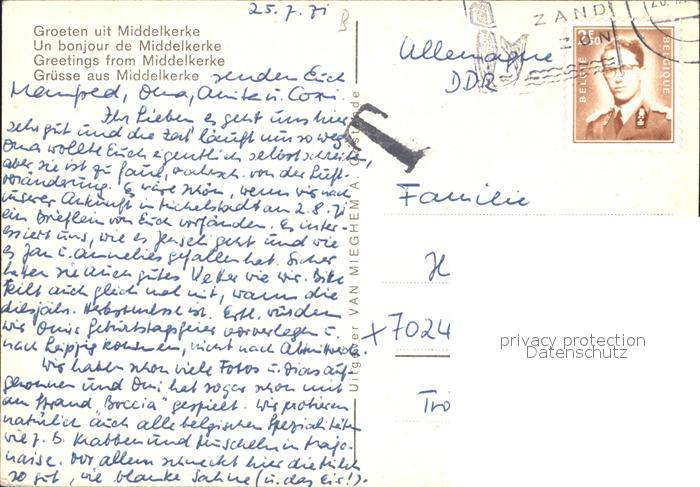 25.7.71
Groeten uit Middelkerke
Un bonjour de Middelkerke
Greetings from Middelkerke
Grüsse aus Middelkerke senden Euch
Manfred, Oma, Anita u. Cori.
Ihr Lieben es geht uns hier
sehr gut und die Zeit läuft uns so weg.
Oma wollte Euch eigentlich selbst schreiben,
aber sie ist zu faul, wahrsch. von der Luft-
veränderung. Es wäre schön, wenn wir nach
unserer Ankunft in Michelstadt am 2.8.71
ein Brieflein von Euch vorfänden. Es inter-
essiert uns, wie es geht und wie
es Jan u. Annelies gefallen hat. Sicher
hatten sie auch gutes Wetter wie wir. Bitte
teilt auch gleich mal mit, wann die
diesjähr. Herbstmesse ist. Evtl. würden
wir Omis Geburtstagsfeier vorverlegen u.
nach Leipzig kommen, nicht nach
Wir haben schon viele Fotos u. Dias auf-
genommen und Omi hat sogar schon mit
am Strand "Boccia" gespielt. Wir probieren
natürlich auch alle belgischen Spezialitäten
wie z.B. Krabben und Muscheln in Majo-
naise. Vor allem schmeckt hier die Milch
so gut, wie blanke Sahne (u. das Eis!).
Uitgever VAN MIEGHEM A. Oostende
B
T
ZAND
ZON
2F50
BELGIË
BELGIQUE
Allemagne
DDR
Familie
H
7024
Trö
privacy protection
Datenschutz